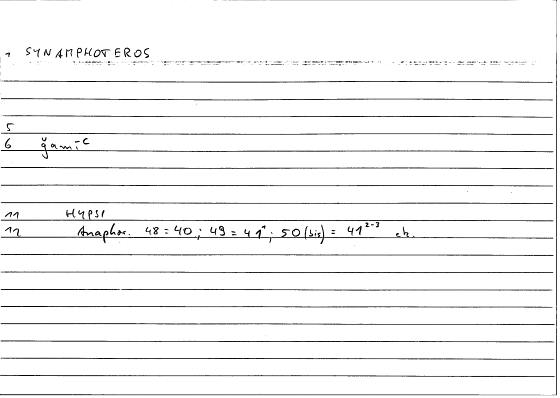 1 SYNAMPHOTEROS
5
6 ǧamīʿ
11 HYPSI
12 Anaphor. 48 = 40 ; 49 = 41¹ ; 50 (bis) = 41²⁻³ etc.